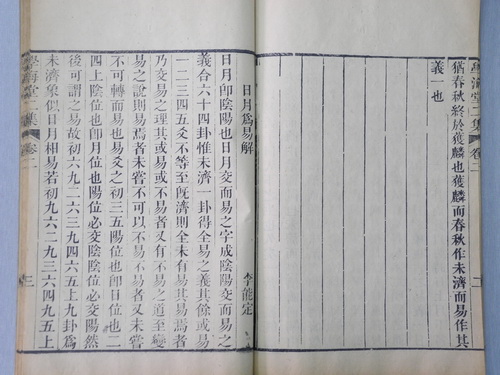 學海堂二集 卷二 二
猶春秋終於獲麟也獲麟而春秋作未濟而易作其
義一也
日月爲易解 李能定
日月卽陰陽也日月交而易之字成陰陽交而易之
義合六十四卦惟未濟一卦得全易之義其餘或易
一二三四五爻不等至旣濟則全未有易其易焉者
乃交易之理其或易或不易者又有不易之道至變
易之說則易焉者未嘗不可以不易不易者又未嘗
不可轉而易也爻之初三五陽位也卽日位也二
四上陰位也卽月位也陽位必交陰陰位必交陽然
後可謂之易故初六九二六三九四六五上九卦爲
未濟象似日月相易若初九六二九三六四九五上
學海堂二集 卷二 三